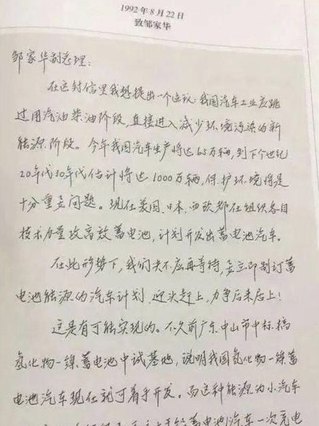 1992年8月22日
致邹家华
邹家华副总理：
在这封信里我想提出一个建议：我国汽车工业应跳
过用汽油柴油阶段，直接进入减少环境污染的新
能源阶段。今年我国汽车生产将达65万辆，到下个世纪
20年代30年代估计将达1000万辆，保护环境将是
十分重要问题。现在美国、日本、西欧都在组织各自
技术力量攻高效蓄电池，计划开发出蓄电池汽车。
在此形势下，我们决不应再等待，要立即制订蓄
电池能源的汽车计划，迎头赶上，力争后来居上！
这是有可能实现的。不久前广东中山市中标搞
氢化物—镍蓄电池中试基地，说明我国氢化物—镍蓄
电池汽车现在就可着手开发。而这种能源为小汽车
蓄电池汽车一次充电